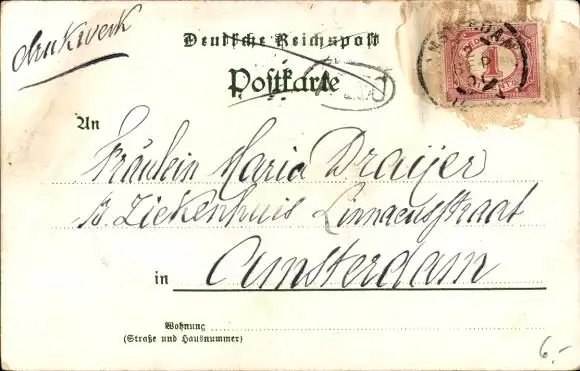 drukwerk
Deutsche Reichspost
Postkarte
AMSTERDAM
1
An
Fräulein Maria Draijer
p. Ziekenhuis Linnaeusstraat
in Amsterdam
Wohnung
(Straße und Hausnummer)
6.-